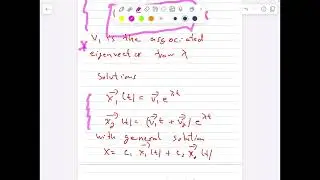 V₁ is the associated
eigenvector from λ
Solutions
x₁(t) = v₁ e^λt
x₂(t) = (v₁t + v₂) e^λt
with general solution
x = c₁ x₁(t) + c₂ x₂(t)